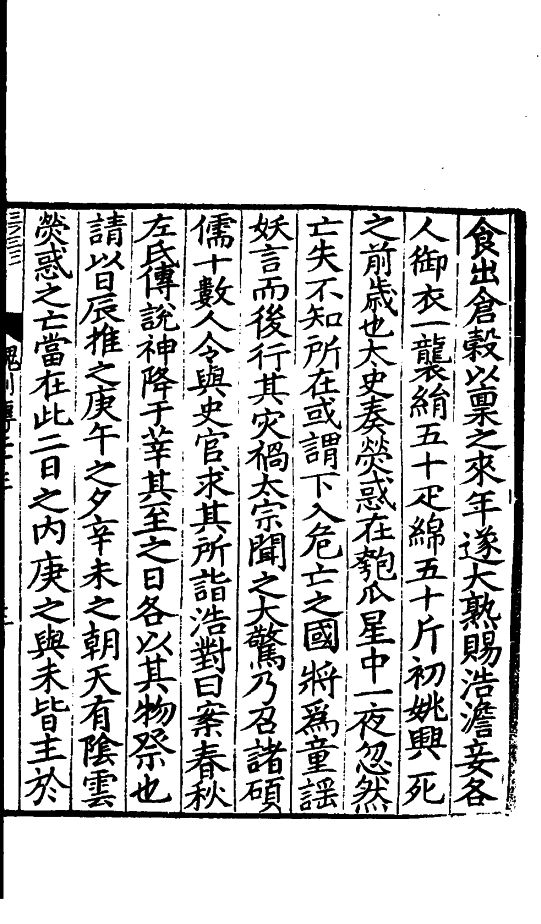 食出倉穀以稟之來年遂大熟賜浩澹妾各
人御衣一襲絹五十疋綿五十斤初姚興死
之前歲也太史奏熒惑在匏瓜星中一夜忽然
亡失不知所在或謂下入危亡之國將爲童謡
妖言而後行其灾禍太宗聞之大驚乃召諸碩
儒十數人令與史官求其所詣浩對曰案春秋
左氏傳說神降于莘其至之日各以其物祭也
請以日辰推之庚午之夕辛未之朝天有陰雲
熒惑之亡當在此二日之内庚之與未皆主於